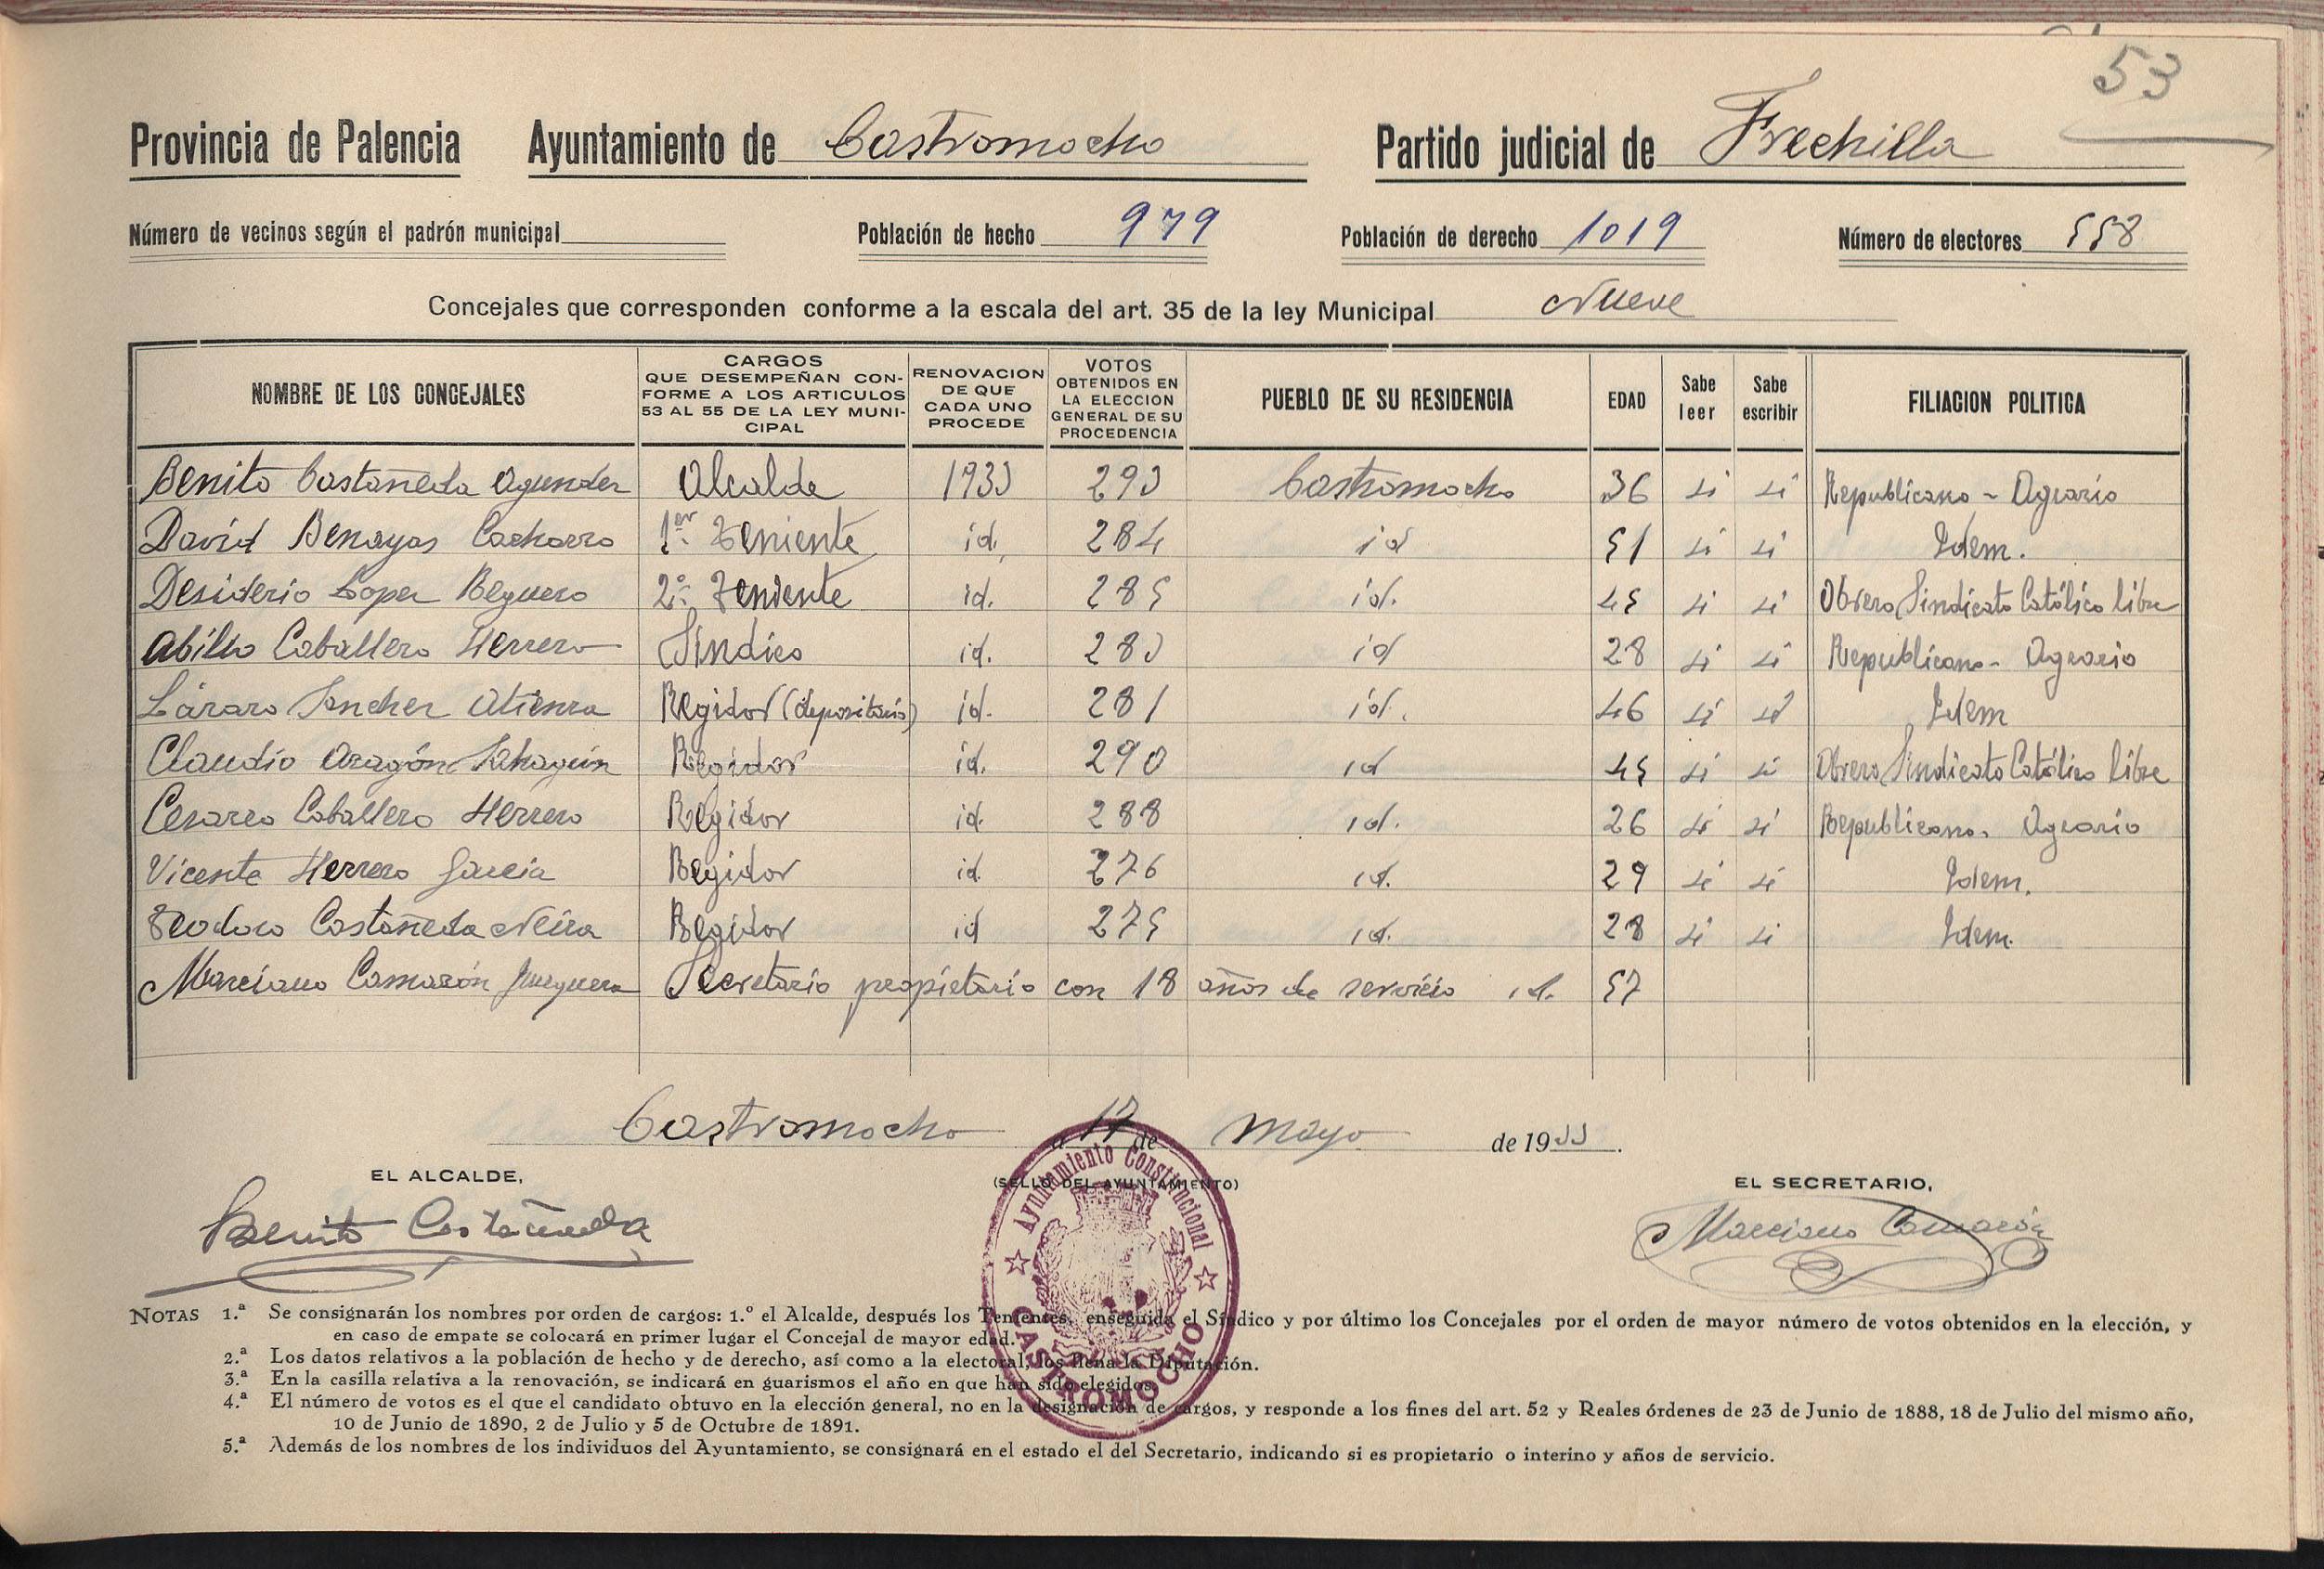 53
Provincia de Palencia Ayuntamiento de Castromocho Partido judicial de Frechilla
Número de vecinos según el padrón municipal Población de hecho 979 Población de derecho 1019 Número de electores 558
Concejales que corresponden conforme a la escala del art. 35 de la ley Municipal Nueve
NOMBRE DE LOS CONCEJALES CARGOS QUE DESEMPEÑAN CONFORME A LOS ARTICULOS 53 AL 55 DE LA LEY MUNICIPAL RENOVACION DE QUE CADA UNO PROCEDE VOTOS OBTENIDOS EN LA ELECCION GENERAL DE SU PROCEDENCIA PUEBLO DE SU RESIDENCIA EDAD Sabe leer Sabe escribir FILIACION POLITICA
Benito Castañeda Agundez Alcalde 1933 293 Castromocho 36 si si Republicano - Agrario
David Benayas Cachorro 1er Teniente id. 284 id 51 si si Idem.
Desiderio Lopez Reguero 2º Teniente id. 285 id. 45 si si Obrero Sindicato Católico libre
Abilio Caballero Herrero Síndico id. 283 id 28 si si Republicano - Agrario
Lázaro Sanchez Atienza Regidor (depositario) id. 281 id. 46 si si Idem
Claudio Aragón Sahagún Regidor id. 290 id 45 si si Obrero Sindicato Católico libre
Cesareo Caballero Herrero Regidor id. 288 id. 26 si si Republicano. Agrario
Vicente Herrero García Regidor id. 276 id. 29 si si Idem.
Teodoro Castañeda Neira Regidor id 275 id. 28 si si Idem.
Marciano Camazón Secretario propietario con 18 años de servicio id. 57
Castromocho a 17 de Mayo de 1933.
EL ALCALDE, (SELLO DEL AYUNTAMIENTO) EL SECRETARIO,
Benito Castañeda Marciano Camazón
Ayuntamiento Constitucional
CASTROMOCHO
NOTAS 1.ª Se consignarán los nombres por orden de cargos: 1.º el Alcalde, después los Tenientes, enseguida el Síndico y por último los Concejales por el orden de mayor número de votos obtenidos en la elección, y
en caso de empate se colocará en primer lugar el Concejal de mayor edad.
2.ª Los datos relativos a la población de hecho y de derecho, así como a la electoral, los llena la Diputación.
3.ª En la casilla relativa a la renovación, se indicará en guarismos el año en que han sido elegidos.
4.ª El número de votos es el que el candidato obtuvo en la elección general, no en la designación de cargos, y responde a los fines del art. 52 y Reales órdenes de 23 de Junio de 1888, 18 de Julio del mismo año,
10 de Junio de 1890, 2 de Julio y 5 de Octubre de 1891.
5.ª Además de los nombres de los individuos del Ayuntamiento, se consignará en el estado el del Secretario, indicando si es propietario o interino y años de servicio.